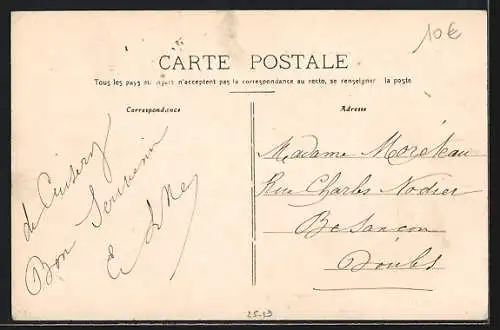 10€
CARTE POSTALE
Tous les pays étrangers n'acceptent pas la correspondance au recto, se renseigner à la poste
Correspondance
Adresse
de Cuisery
Bon Souvenir
Madame Moreau
Rue Charles Nodier
Besançon
Doubs
25-59